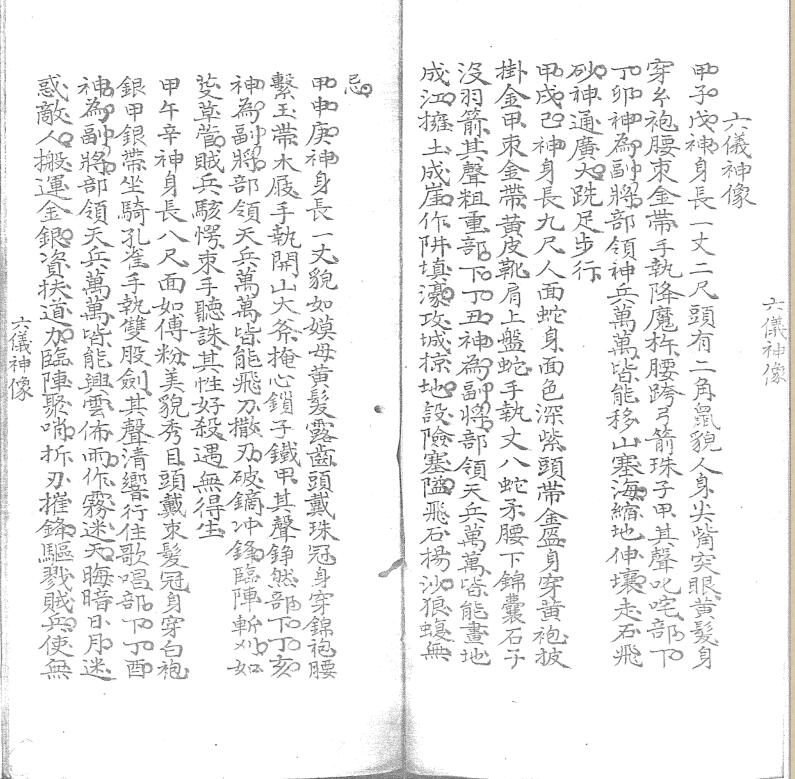 六儀神像
甲子戊神身長一丈二尺頭有二角鼠貌人身尖嘴突眼黃髮身
穿幺袍腰束金帶手執降魔杵腰跨弓箭珠子甲其聲叱咤部下
丁卯神為副將部領神兵萬萬皆能移山塞海縮地伸壤走石飛
砂神通廣大跣足步行
甲戌己神身長九尺人面蛇身面色深紫頭帶金盔身穿黃袍披
掛金甲束金帶黃皮靴肩上盤蛇手執丈八蛇矛腰下錦囊石子
沒羽箭其聲粗重部下丁丑神為副將部領天兵萬萬皆能畫地
成江擁土成崖作阱填濠攻城掠地設險塞隘飛石揚沙狼蝗無
六儀神像
忌
甲申庚神身長一丈貌如嫫母黃髮露齒頭戴珠冠身穿錦袍腰
繫玉帶木屐手執開山大斧掩心鎖子鐵甲其聲錚然部下丁亥
神為副將部領天兵萬萬皆能飛刀撒刃破鏑冲鋒臨陣斬刈如
芟草菅賊兵駭愕束手聽誅其性好殺遇無得生
甲午辛神身長八尺面如傅粉美貌秀目頭戴束髮冠身穿白袍
銀甲銀帶坐騎孔雀手執雙股劍其聲清響行住歌唱部下丁酉
神為副將部領天兵萬萬皆能興雲佈雨作霧迷天晦暗日月迷
惑敵人搬運金銀資扶道力臨陣聚哨折刃摧鋒驅戮賊兵使無
六儀神像